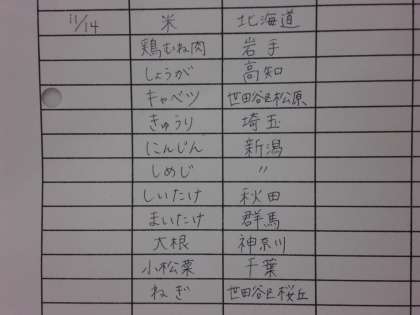 11/14 米 北海道
鶏むね肉 岩手
しょうが 高知
キャベツ 世田谷区松原
きゅうり 埼玉
にんじん 新潟
しめじ 〃
しいたけ 秋田
まいたけ 群馬
大根 神奈川
小松菜 千葉
ねぎ 世田谷区桜丘